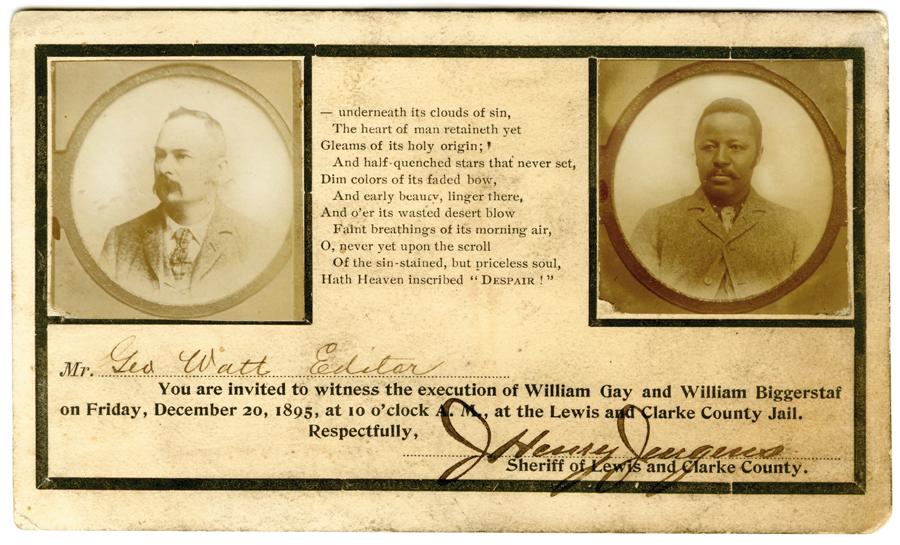 — underneath its clouds of sin,
The heart of man retaineth yet
Gleams of its holy origin; '
And half-quenched stars that never set,
Dim colors of its faded bow,
And early beauty, linger there,
And o'er its wasted desert blow
Faint breathings of its morning air,
O, never yet upon the scroll
Of the sin-stained, but priceless soul,
Hath Heaven inscribed "DESPAIR!"
Mr. Geo Watt Editor
You are invited to witness the execution of William Gay and William Biggerstaf
on Friday, December 20, 1895, at 10 o'clock A. M., at the Lewis and Clarke County Jail.
Respectfully,
J Henry Jurgens
Sheriff of Lewis and Clarke County.